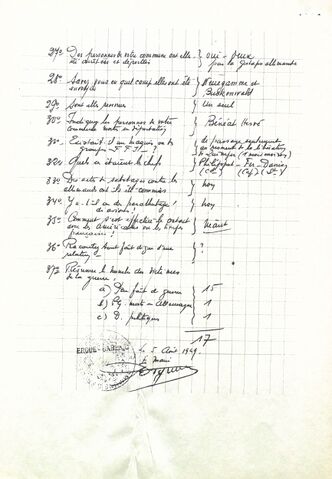 27e Des personnes de votre commune ont-elles
été arrêtées et déportées } oui - deux
par la Gestapo allemande
28e Savez-vous en quel camp elles ont été
envoyées } Neuegamme et
Buchenwald
29e Sont-elles rentrées } Un seul
30e Indiquez les personnes de votre
commune mortes en déportation } Bénéat Hervé
31e Existait-il un maquis ou
groupes F.F.I. } de passage seulement
au moment de la libération
32e Quels en étaient les chefs } Philippot - Le Danic
33e Des actes de sabotages contre les
allemands ont-ils été commis } non
34e Y eut-il eu des parachutages
d'avions } non
35e Comment s'est effectué le contact
avec les américains ou les troupes
françaises } Néant
36e Racontez tout fait digne d'une
relation } ?
37e Résumez le nombre des victimes
de la guerre
a) Par fait de guerre } 15
b) P.G. morts en Allemagne } 1
c) D. politiques } 1
17
ERGUE-GABERIC
le 5 Août 1949
Le Maire